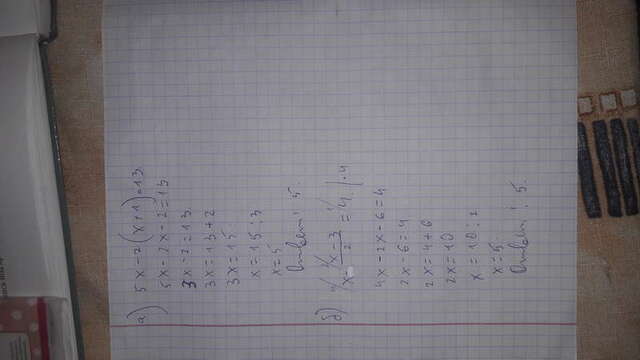 а) 5x-2(x+1)=13
5x-2x-2=13
3x-2=13
3x=13+2
3x=15
x=15:3
x=5
Ответ: 5.
б) x-\frac{x-3}{2}=4 |·4
4x-2x-6=4
2x-6=4
2x=4+6
2x=10
x=10:2
x=5
Ответ: 5.